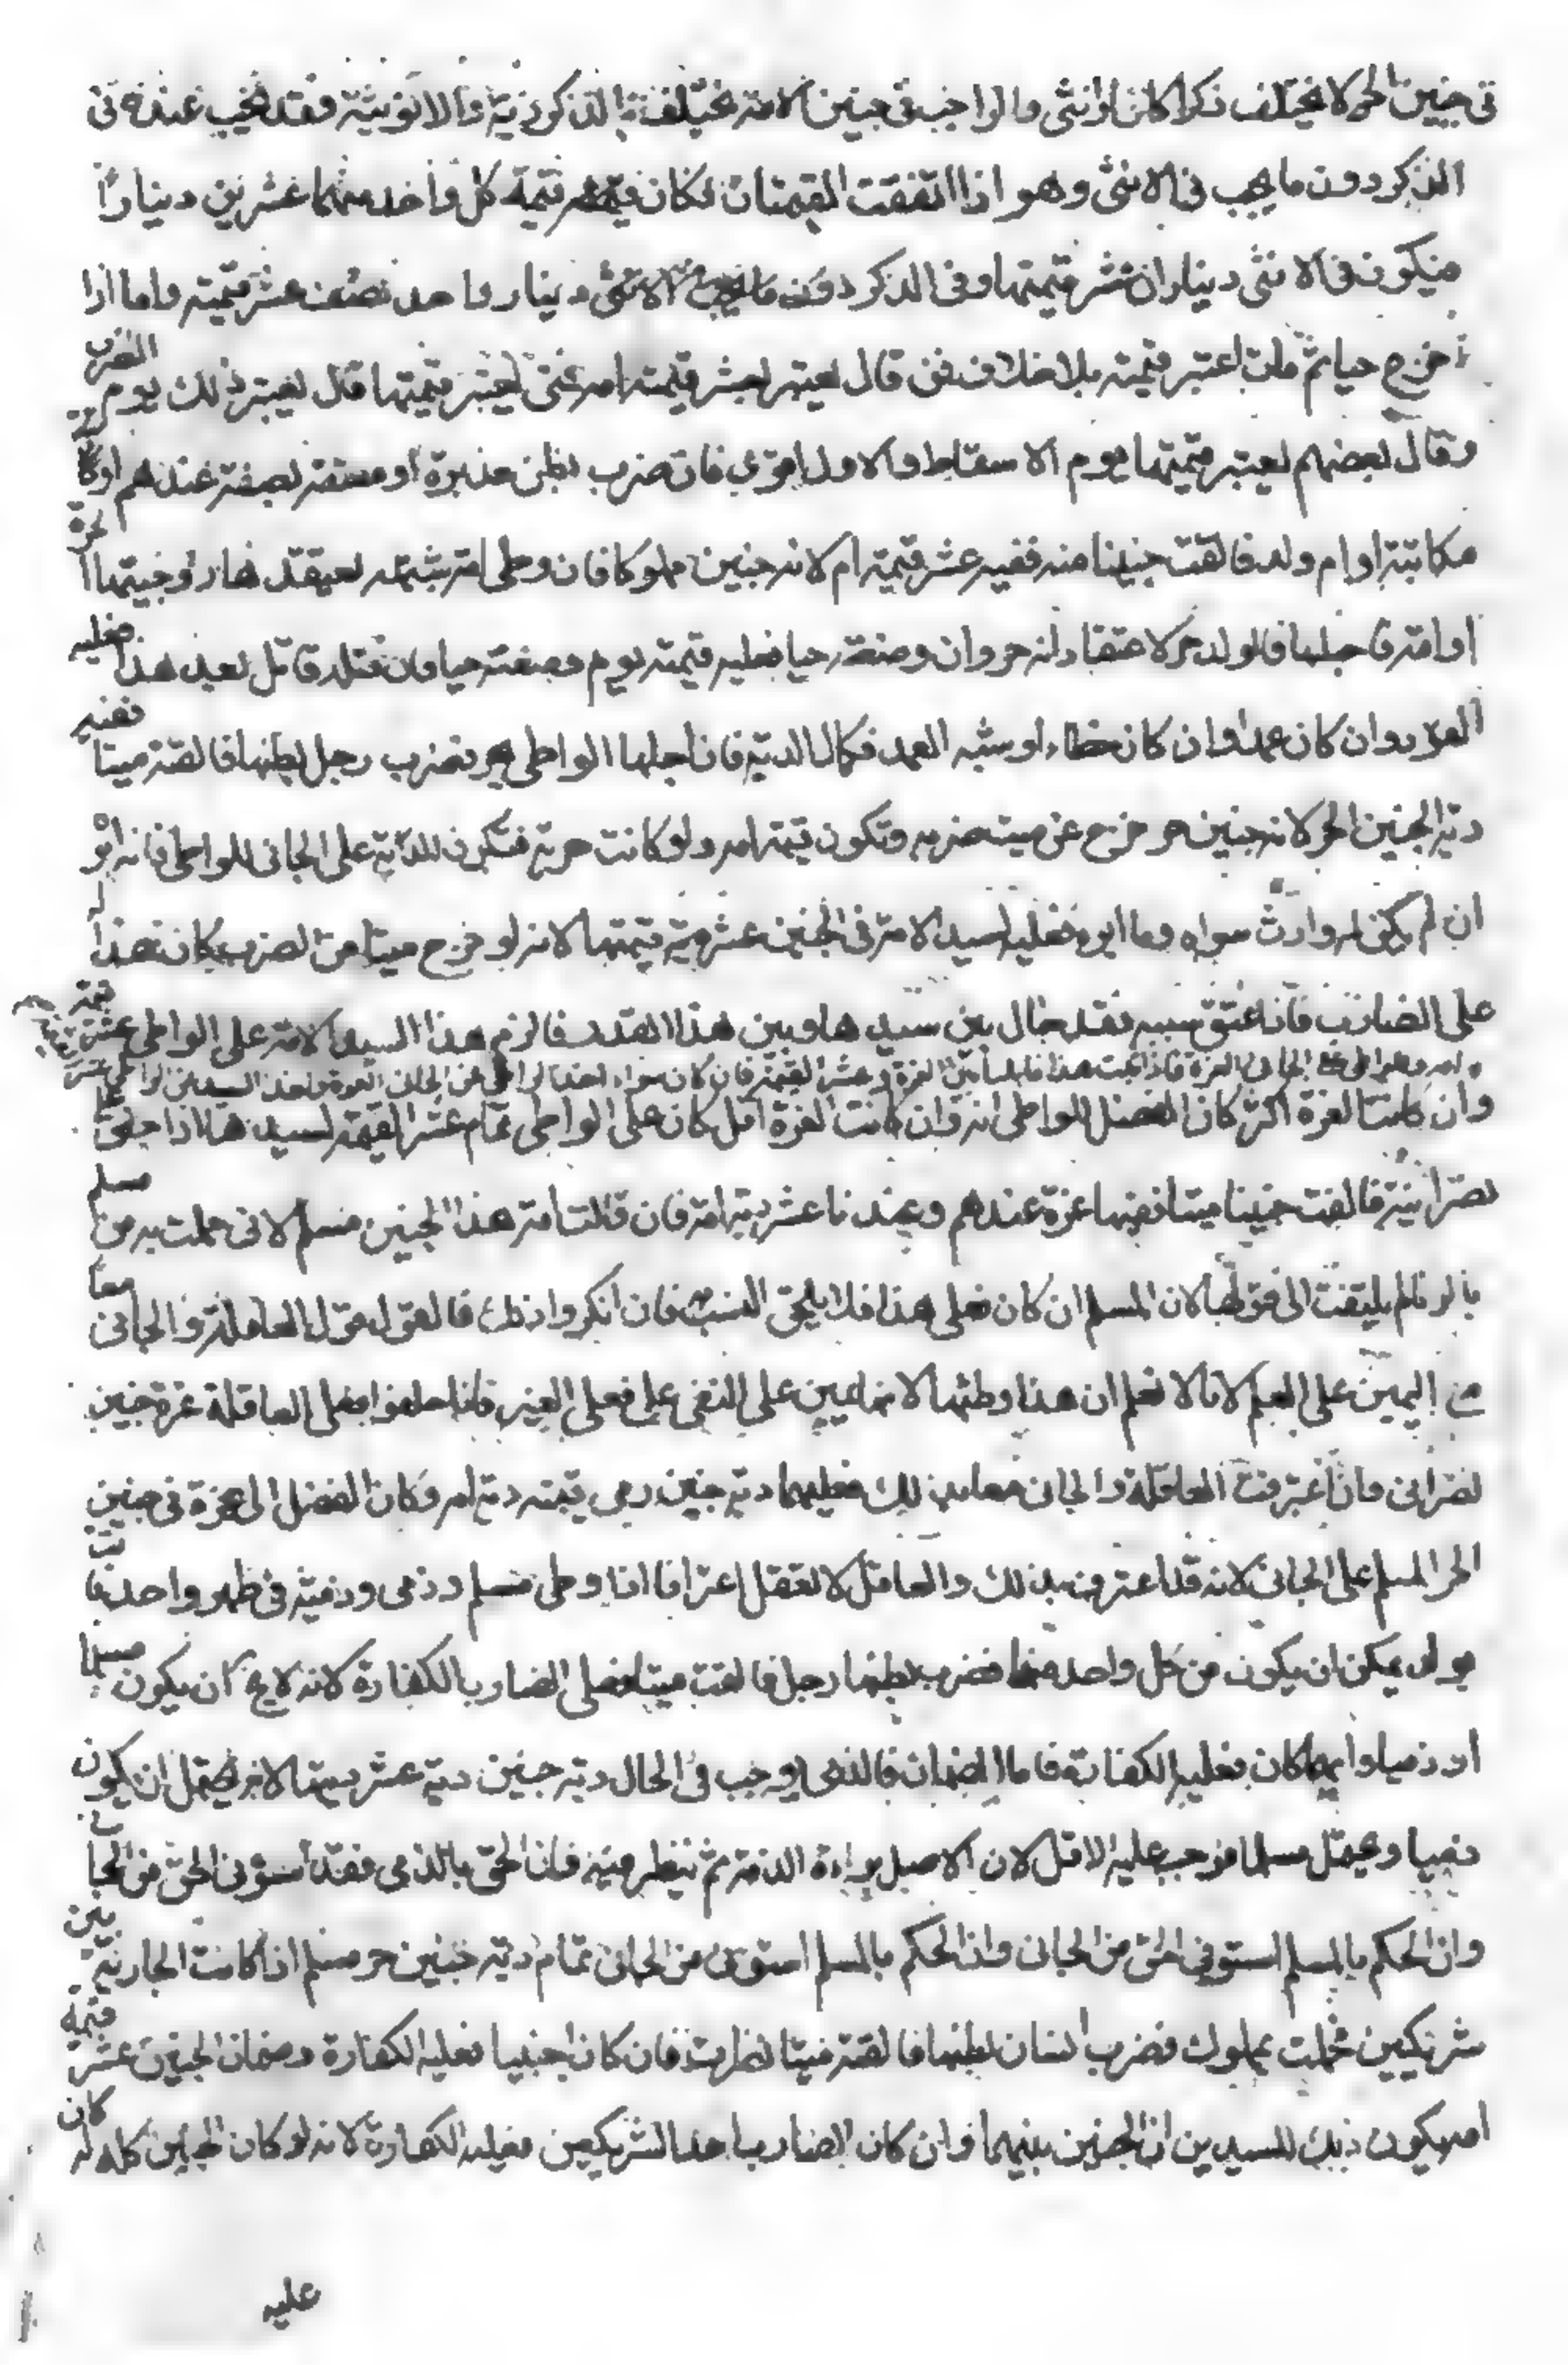 في جنين الحر لا يختلف ذكرا كان او انثى والواجب في جنين الامة يختلف بالذكورية والانوثية فقد يجب عنده في
الذكر دون ما يجب في الانثى وهو اذا اتفقت القيمتان فكان قيمة كل واحد منهما عشرين دينارا
فيكون في الانثى ديناران عشر قيمتها وفي الذكر دون ما يجب في الانثى دينار واحد نصف عشر قيمته واما اذا
خرج حيا ثم مات اعتبر قيمته بلا خلاف فمن قال يعتبر بعشر قيمة امه متى يعتبر قيمتها قال يعتبر ذلك يوم الضرب
وقال بعضهم يعتبر قيمتها يوم الاسقاط والاول اقوى فان ضرب بطن مدبرة او معتقة بصفة عندهم او كا
مكاتبة او ام ولد فالقت جنينا منه ففيه عشر قيمة ام لانه جنين مملوك فان وطى امة بشبهة يعتقدها زوجته الحرة
او امته فاحبلها فالولد حر لاعتقاده انه حر وان وضعته حيا فعليه قيمته يوم وضعته حيا فان قتله قاتل بعد هذا فعليه
القود ان كان عمدا وان كان خطاء او شبه العمد فكمال الدية فان احبلها الواطى فضرب رجل بطنها فالقته ميتا ففيه
دية الجنين الحر لانه جنين حر خرج عن ميت ضربه وتكون قيمة امه ولو كانت حرية فتكون الدية على الجاني للواطى فانه ابو
ان لم يكن له وارث سواه وما ابوه فعليه لسيد الامة في الجنين عشر قيمتها لانه لو خرج ميتا من الضرب كان هذا
على الضارب فاذا عتق بسببه فقد حال بين سيدها وبين هذا القدر فالزم هذا السيد الامة على الواطى عشر قيمة
امه الجاني الغرة فاذا ثبت هذا قابلنا بين الغرة وعشر القيمة فان كان سواء اخذ الواطى من الجاني الغرة واخذ السيد من الواطى عشر
وان كانت الغرة اكثر كان الفضل للواطى وان كانت الغرة اقل كان على الواطى تمام عشر القيمة لسيدها اذا
نصرانية فالقت جنينا ميتا ففيها غرة عندهم وعندنا عشر دية امه فان قالت امه هذا الجنين مسلم لاني حملت به من مسلم
بالزنا لم يلتفت الى قولها لان المسلم ان كان فعل هذا فلا يلحق النسب فان انكروا ذلك فالقول قول العاقلة والجاني معا
مع اليمين على العلم لانا لا نعلم ان هذا وطئها لانها يمين على النفي على فعل الغير فاذا حلفوا فعلى العاقلة غرة جنين
نصراني فان اعترفت العاقلة والجاني معا بذلك فعليهما دية جنين دية امه وكان الفضل الى غرة في جنين
الحر المسلم على الجاني لانه قد اعترف بذلك والعاقل لا تعقل اعترافا اذا وطى مسلم وذمي وذمية في طهر واحد فاتت
بولد يمكن ان يكون من كل واحد منهما فضرب بطنها رجل فالقت ميتا فعلى الضارب الكفارة لانه لا يخ ان يكون مسلما
او ذميا وايهما كان فعليه الكفارة فاما الضمان فالذي يوجب في الحال دية جنين دية عشر ديتها لانه يحتمل ان يكون
ذميا ويحتمل مسلما فوجب عليه الاقل لان الاصل براءة الذمة ثم ينظر فيه فان الحق بالذمي فقد استوفى الحق من الجاني
وان الحكم بالمسلم استوفي الحق من الجاني وان الحكم بالمسلم استوفى من الجاني تمام دية جنين حر مسلم اذا كانت الجارية بين
شريكين فحملت بمملوك فضرب انسان بطنها فالقته ميتا نظرت فان كان اجنبيا فعليه الكفارة وضمان الجنين عشر قيمة
امه يكون ذلك للسيدين ان الجنين بينهما وان كان الضارب احد الشريكين فعليه الكفارة لانه لو كان الجنين كله له كان
عليه